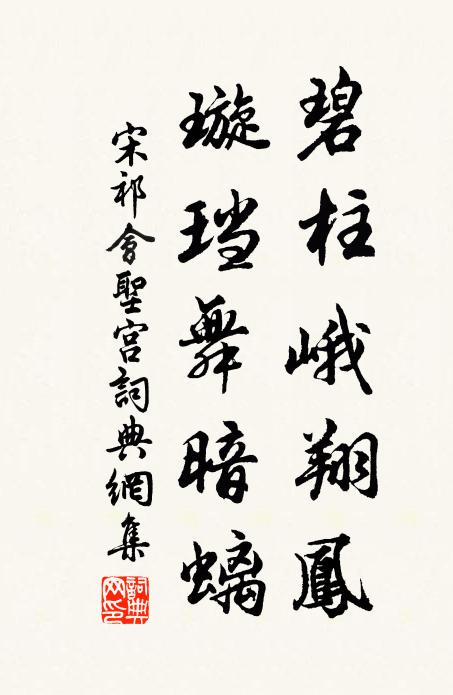 碧柱峨翔鳳
璇珰舞暗螭
宋祁會聖宫詞典網集
詞典网印